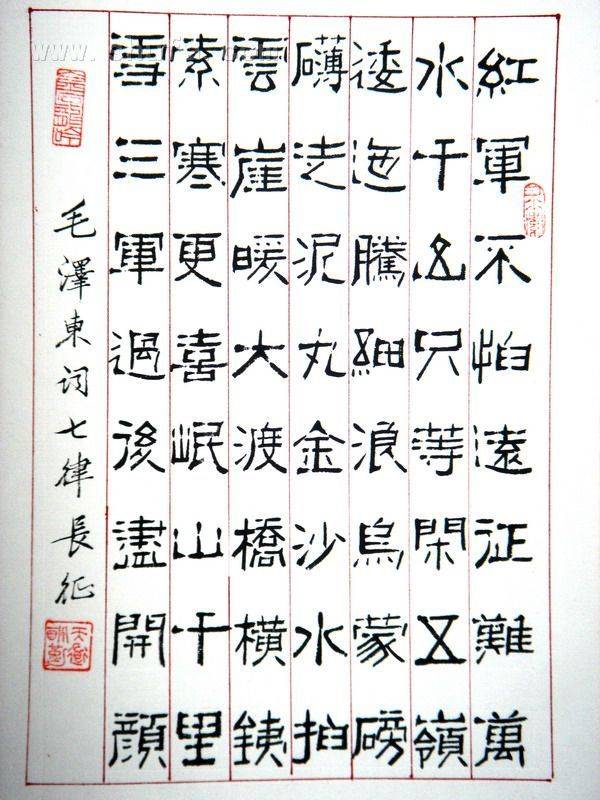 紅軍不怕遠征難萬
水千山只等閑五嶺
逶迤騰細浪烏蒙磅
礴走泥丸金沙水拍
雲崖暖大渡橋橫鐵
索寒更喜岷山千里
雪三軍過後盡開顏
毛澤東词七律長征